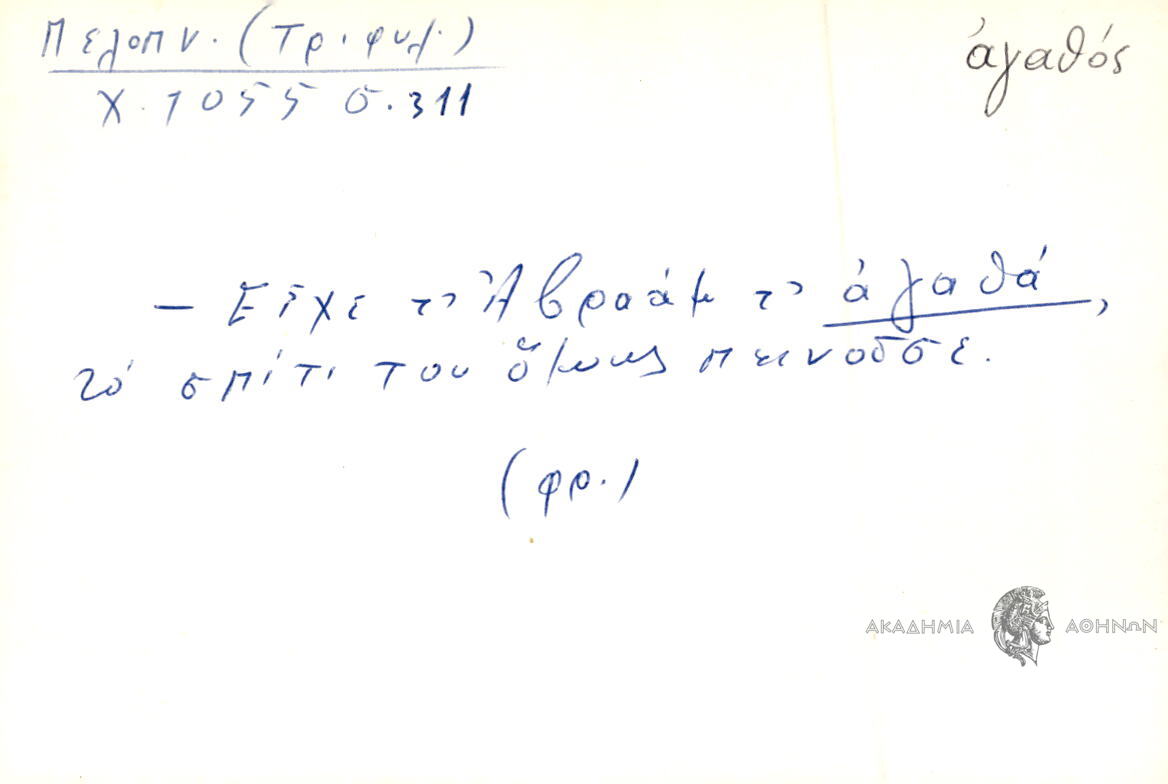 Πελοπν. (Τριφυλ.)
Χ. 1055 σ. 311
ἀγαθός
— Εἶχε τ' Ἀβραάμ τ' ἀγαθά,
τό σπίτι του ὅμως πεινοῦσε.
(φρ.)
ΑΚΑΔΗΜΙΑ ΑΘΗΝΩΝ